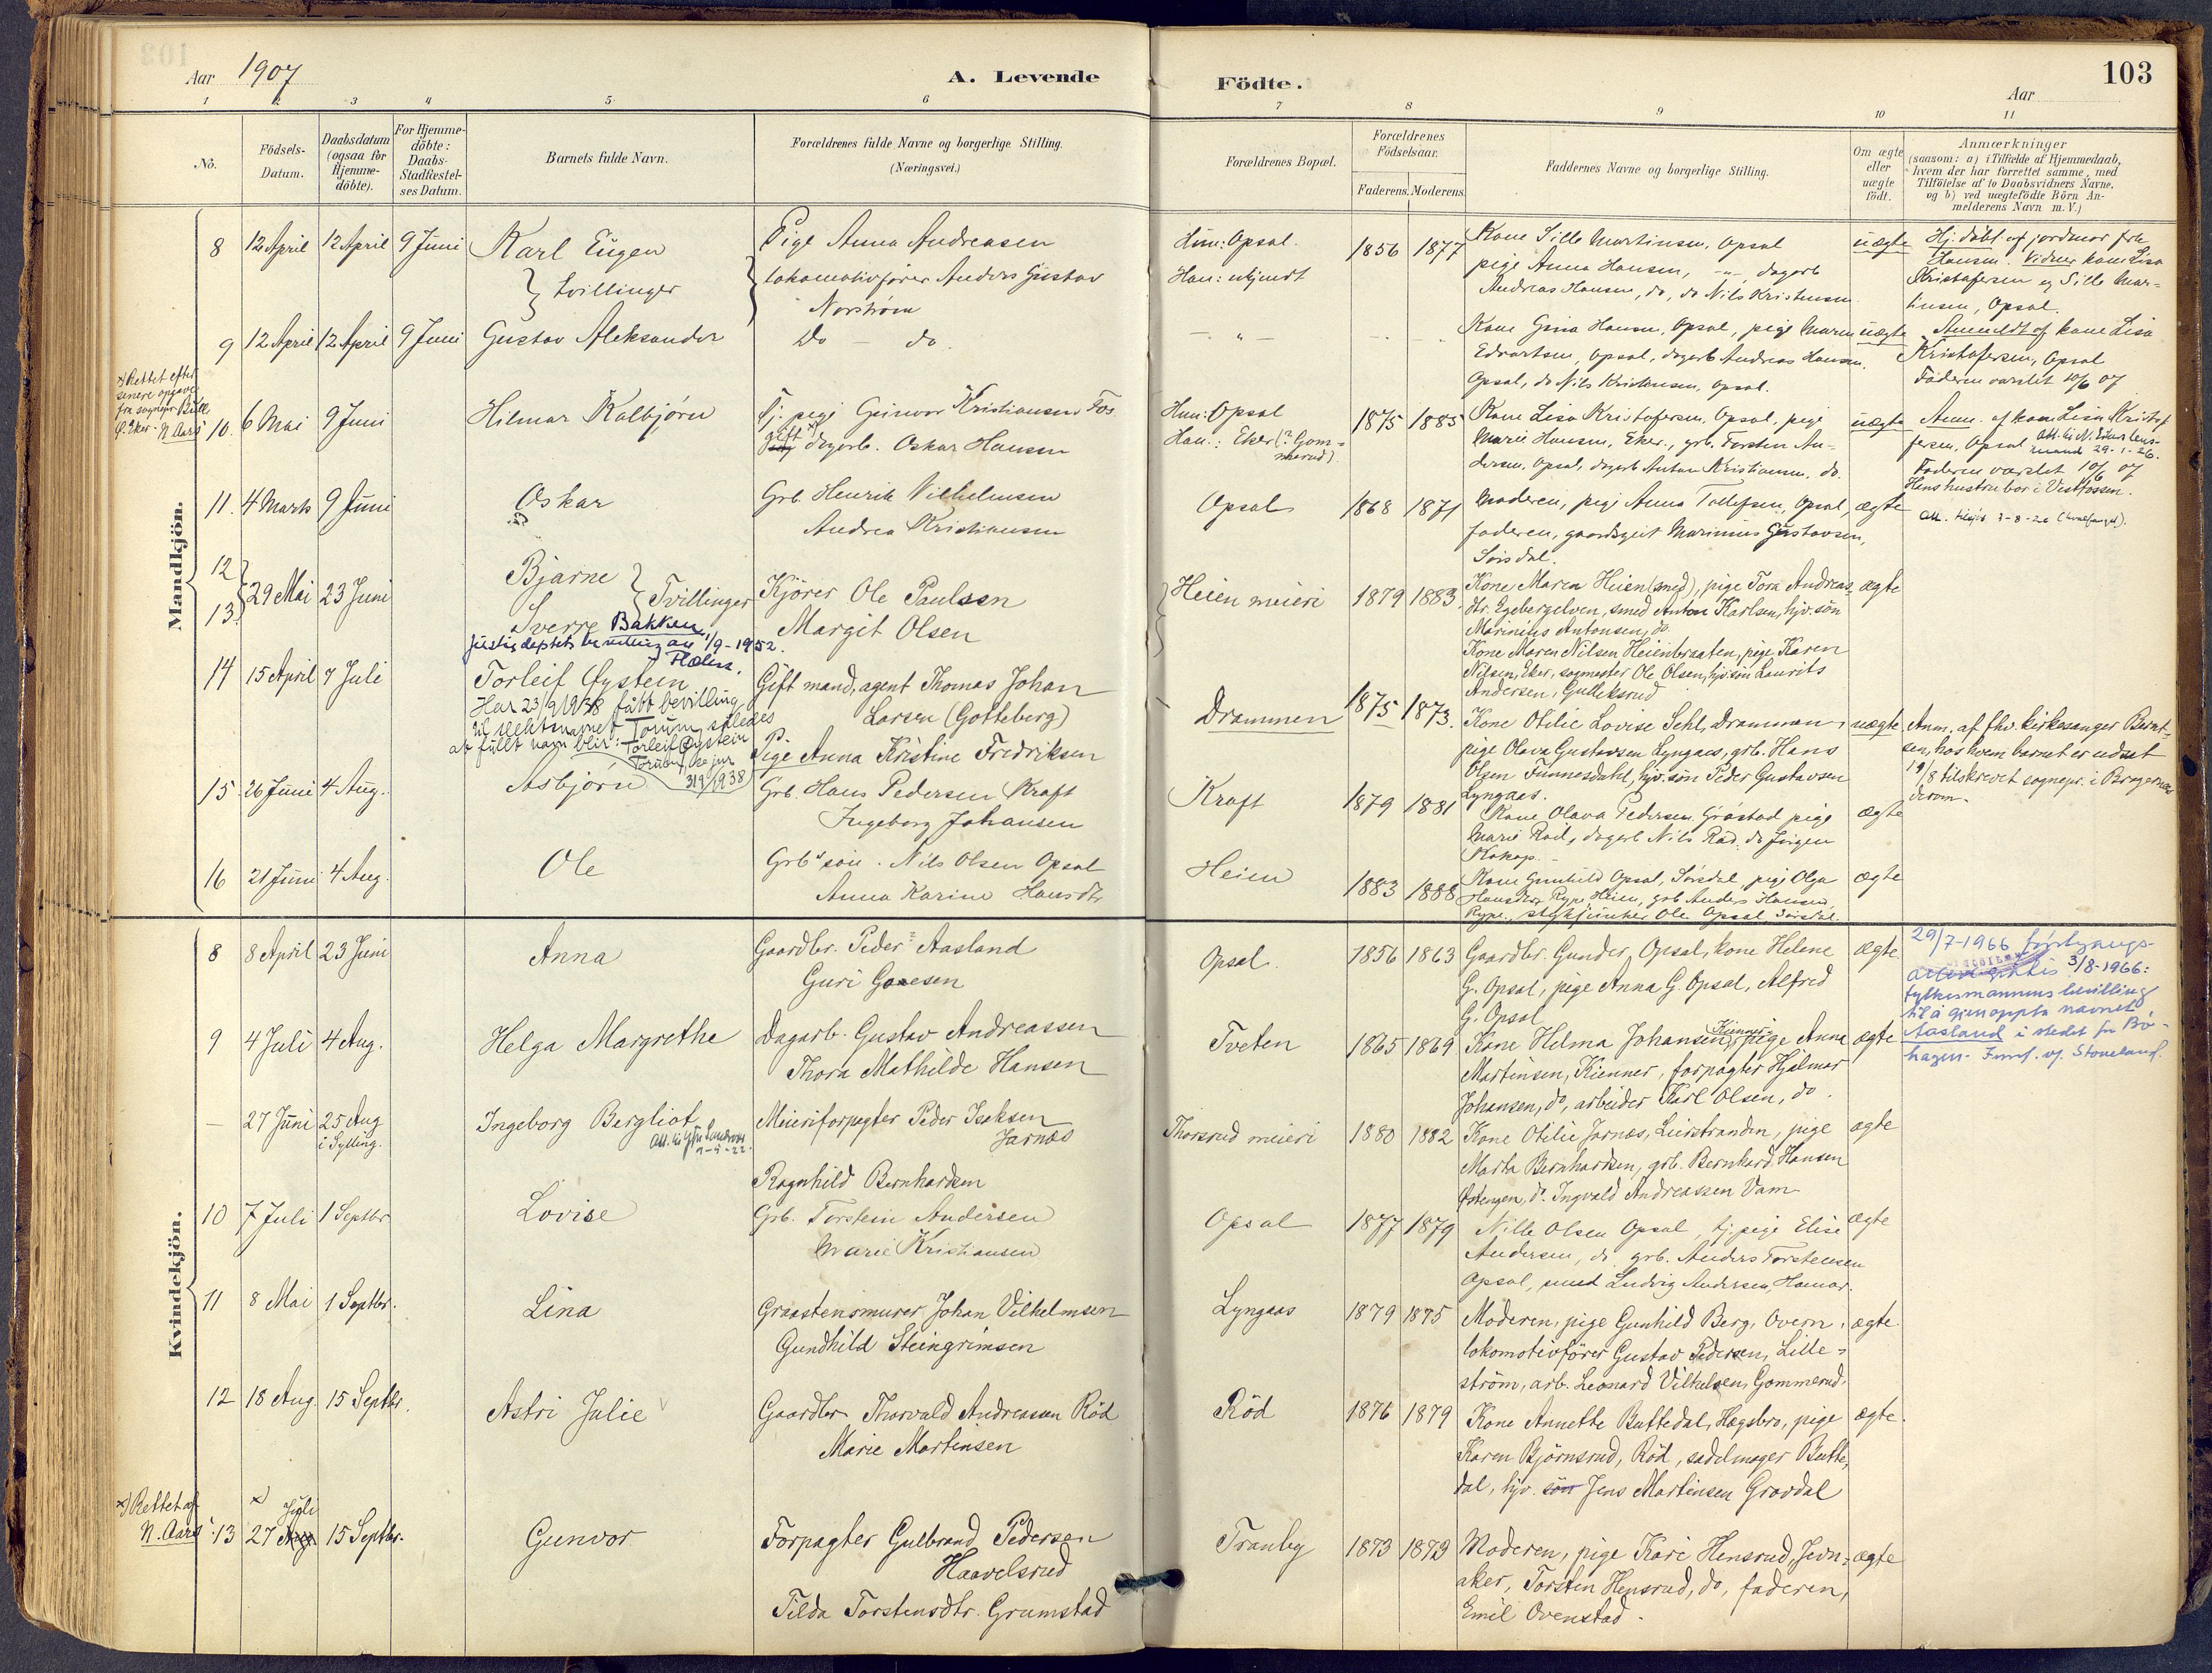 103
Aar 1907
A. Levende
Födte.
Aar
1 2 3 4 5 6 7 8 9 10 11
No.
Födsels-
Datum.
Daabsdatum
(ogsaa for
Hjemme-
döbte).
For Hjemme-
döbte:
Daabs-
Stadfæstel-
ses Datum.
Barnets fulde Navn.
Forældrenes fulde Navne og borgerlige Stilling.
(Næringsvei.)
Forældrenes Bopæl.
Forældrenes
Födselsaar.
Faderens. Moderens.
Faddernes Navne og borgerlige Stilling.
Om ægte
eller
uægte
födt.
Anmærkninger
(saasom: a) i Tilfælde af Hjemmedaab,
hvem der har forrettet samme, med
Tilföielse af to Daabsvidners Navne,
og b) ved uægtefödte Börn An-
melderens Navn m. V.)
Mandkjön.
8 12 April 12 April 9 Juni Karl Eugen
} tvillinger
Pige Anna Andreasen
Lokomotivfører Anders Gustav
Norstrøm
Hun: Opsal.
Han: ukjendt
1856 1877
Kone Sille Martinsen, Opsal
pige Anna Hansen, -"- dagarb
Andreas Hansen, do, do Nils Kristensen
uægte
Hj. døbt af jordmor frk
Hansen. Vidner kone Lisa
Kristofersen og Sille Mar-
tinsen, Opsal.
9 12 April 12 April 9 Juni Gustav Aleksander
Do — do
— " —
Kone Gina Hansen, Opsal, pige Maren
Edvartsen, Opsal, dagarb Andreas Hansen,
Opsal, do Nils Kristensen, Opsal.
uægte
Anmeldt af kone Lisa
Kristofersen, Opsal
Faderen varslet 10/6 07
x) Rettet efter
senere opgave
fra sognepr. Bull
Ø. Eker - N. Aars
10. 6 Mai 9 Juni Hilmar Kolbjørn
Tj. pige Gunvor Kristiansen Fos
gift x) dagarb. Oskar Hansen
Hun: Opsal
Han: Eker (? Gom-
merud)
1875 1885
Kone Lisa Kristofersen, Opsal, pige
Marie Hansen, Eker., grb. Torsten An-
dersen, Opsal, dagarb Anton Kristiansen, do.
uægte
Anm. af kone Lisa Kristof-
fersen, Opsal
29-1-26.
Faderen varslet 10/6 07
Hans hustru bor i Vestfossen.
11. 4 Marts 9 Juni Oskar
Grb. Henrik Vilhelmsen
Andrea Kristiansen
Opsal 1868 1871
Moderen, pige Anna Tollefsen, Opsal,
faderen, gaardsgut Marinius Gustavsen,
Sørsdal.
ægte
Att. 3-8-20
12
13 } 29 Mai 23 Juni
Bjarne
Sverre Bakken } Tvillinger
Justisdeptets bevilling av 1/9-1952.
Kjører Ole Paulsen
Margit Olsen
Heien meieri 1879 1883.
Kone Maren Heien (smed), pige Tora Andreas-
dtr. Egebergelven, smed Anton Karlsen, hjv. søn
Marinius Antonsen, do.
Kone Maren Nilsen Heienbraaten, pige Karen
Nilsen, Eker, sagmester Ole Olsen, hjv. søn Laurits
Andersen, Gulleksrud
ægte
14 15 April 7 Juli Torleif Øystein
Har 23/9 1938 fått bevilling
til slektsnavnet Torum, således
at fullt navn blir: Torleif Øystein
Torum,
31/9 1938
Gift mand, agent Thomas Johan
Larsen (Gotteberg)
Pige Anna Kristine Fredriksen
Drammen 1875 1873.
Kone Otilie Lovise Sehl, Drammen,
pige Olava Gustavsen Lyngaas, grb. Hans
Olsen Funnesdahl, hjv. søn Peder Gustavsen
Lyngaas.
uægte
Anm. af fhv. kirkesanger Bernt-
sen, hos hvem barnet er udsat
19/8 tilskrevet sognepr. i Bragernes
derom.
15 26 Juni 4 Aug. Asbjørn
Grb. Hans Pedersen Kraft
Ingeborg Johansen
Kraft 1879 1881
Kone Olava Pedersen Grøstad pige
Marie Rød, dagarb Nils Rød, do Jørgen
ægte
16 21 Juni 4 Aug. Ole
Grb's søn. Nils Olsen Opsal
Anna Karine Hansdtr.
Heien 1883 1888
Kone Gunhild Opsal, Sørsdal, pige Olga
Hansdtr. Rype Heien, grb Anders Hansen
Rype, Ole Opsal Sørsdal.
ægte
Kvindekjön.
8 8 April 23 Juni Anna
Gaardbr. Peder Aasland
Guri Goresen
Opsal. 1856 1863
Gaardbr. Gunder Opsal, kone Helene
G. Opsal, pige Anna G. Opsal, Alfred
G. Opsal
ægte
29/7-1966
3/8-1966:
fylkesmannens bevilling
til å gjenoppta navnet
Aasland i stedet for Bø-
hagen.
9 4 Juli 4 Aug. Helga Margrethe
Dagarb. Gustav Andreassen
Thora Mathilde Hansen
Tveten 1865 1869
Kone Helma Johansen, Kienner, pige Anna
Martinsen, Kienner, forpagter Hjalmar
Johansen, do, arbeider Karl Olsen, do.
ægte
— 27 Juni 25 Aug
i Sylling.
Ingeborg Bergliot
Meieriforpagter Peder Isaksen
Jarnæs
Ragnhild Bernhardsen
Thorsrud meieri 1880 1882
Kone Otilie Jarnæs, Lierstranden, pige
Marta Bernhardsen, grb. Bernhard Hansen
Østengen, do. Ingvald Andreassen Dam
ægte
10 7 Juli 1 Septbr Lovise
Grb. Torstein Andersen
Marie Kristiansen
Opsal 1877 1879
Nille Olsen Opsal, tj. pige Elise
Andersen, do, grb. Anders Torstensen
Opsal, smed Ludvig Andersen, Hamar.
ægte
11 8 Mai 1 Septbr. Lina
Graastensmurer Johan Vilhelmsen
Gundhild Steingrimsen
Lyngaas 1879 1875
Moderen, pige Gunhild Berg, Overn,
lokomotivfører Gustav Pedersen, Lille-
strøm, arb. Leonard Vilhelmsen, Gommerud.
ægte.
12 18 Aug. 15 Septbr. Astri Julie
Gaardbr. Thorvald Andreassen Röd
Marie Martinsen
Röd 1876 1879
Kone Annette Buttedal, Hægsbro, pige
Karen Bjørnsrud, Röd, sadelmager Butte-
dal, hjv. søn Jens Martinsen Grovdal
ægte.
x) Rettet af
N. Aars
13 27 Juli Aug. 15 Septbr. Gunvor
Forpagter Gulbrand Pedersen
Haavelsrud
Tilda Torstensdtr. Grumstad
Tranby 1873 1873
Moderen, pige Kari Hensrud, Jevn-
aker, Torsten Hensrud, do, faderen,
Emil Ovenstad.
ægte